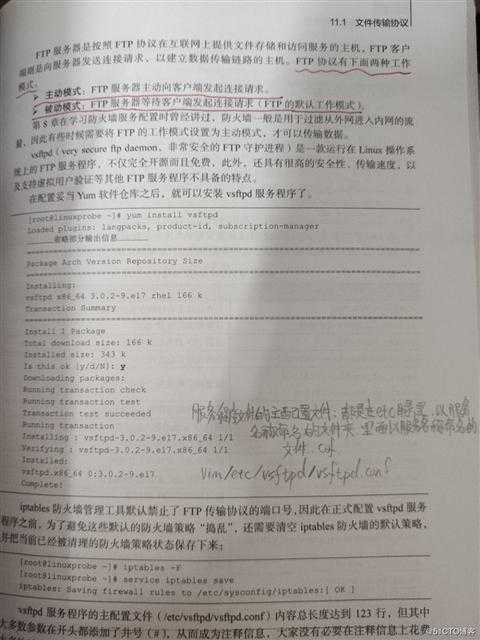 11.1 文件传输协议
FTP 服务器是按照 FTP 协议在互联网上提供文件存储和访问服务的主机，FTP 客户
端则是向服务器发送连接请求，以建立数据传输链路的主机。FTP 协议有下面两种工作
模式。
主动模式：FTP 服务器主动向客户端发起连接请求。
被动模式：FTP 服务器等待客户端发起连接请求（FTP 的默认工作模式）。
第 8 章在学习防火墙服务配置时曾经讲过，防火墙一般是用于过滤从外网进入内网的流
量，因此有些时候需要将 FTP 的工作模式设置为主动模式，才可以传输数据。
vsftpd（very secure ftp daemon，非常安全的 FTP 守护进程）是一款运行在 Linux 操作系
统上的 FTP 服务程序，不仅完全开源而且免费，此外，还具有很高的安全性、传输速度，以
及支持虚拟用户验证等其他 FTP 服务程序不具备的特点。
在配置妥当 Yum 软件仓库之后，就可以安装 vsftpd 服务程序了。
[root@linuxprobe ~]# yum install vsftpd
Loaded plugins: langpacks, product-id, subscription-manager
………………省略部分输出信息………………
Package Arch Version Repository Size
Installing:
vsftpd x86_64 3.0.2-9.el7 rhel 166 k
Transaction Summary
Install 1 Package
Total download size: 166 k
Installed size: 343 k
Is this ok [y/d/N]: y
Downloading packages:
Running transaction check
Running transaction test
Transaction test succeeded
Running transaction
Installing : vsftpd-3.0.2-9.el7.x86_64 1/1
Verifying : vsftpd-3.0.2-9.el7.x86_64 1/1
Installed:
vsftpd.x86_64 0:3.0.2-9.el7
Complete!
的主要配置文件，都是在etc目录里，以服务
名称命名的文件夹，里面以服务名称命名的
文件.conf
vim/etc/vsftpd/vsftpd.conf
iptables 防火墙管理工具默认禁止了 FTP 传输协议的端口号，因此在正式配置 vsftpd 服务
程序之前，为了避免这些默认的防火墙策略“捣乱”，还需要清空 iptables 防火墙的默认策略，
并把当前已经被清理的防火墙策略状态保存下来：
[root@linuxprobe ~]# iptables -F
[root@linuxprobe ~]# service iptables save
iptables: Saving firewall rules to /etc/sysconfig/iptables:[ OK ]
vsftpd 服务程序的主配置文件（/etc/vsftpd/vsftpd.conf）内容总长度达到 123 行，但其中
大多数参数在开头都添加了井号（#），从而成为注释信息，大家没有必要在注释信息上花费
@51CTO博客